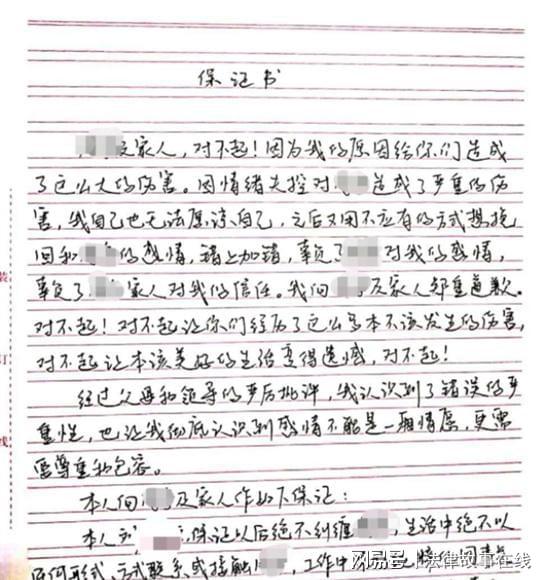 保证书
及家人，对不起！因为我的原因给你们造成
了这么大的伤害。因情绪失控对 造成了严重的伤
害，我自己也无法原谅自己，之后又用不应有的方式想挽
回和 的感情，错上加错，辜负了 对我的感情，
装
辜负了 家人对我的信任。我向 及家人郑重道歉。
对不起！对不起让你们经历了这么多本不该发生的伤害，
订
对不起让本该美好的生活变得遗憾，对不起！
经过父母和领导的严厉批评，我认识到了错误的严
线
重性，也让我彻底认识到感情不能是一厢情愿，更需
要尊重和包容。
本人向 及家人作如下保证：
本人 保证以后绝不纠缠 ，生活中绝不以
任何形式、方式联系或接触 ，工作中
搜狐号@法律故事在线